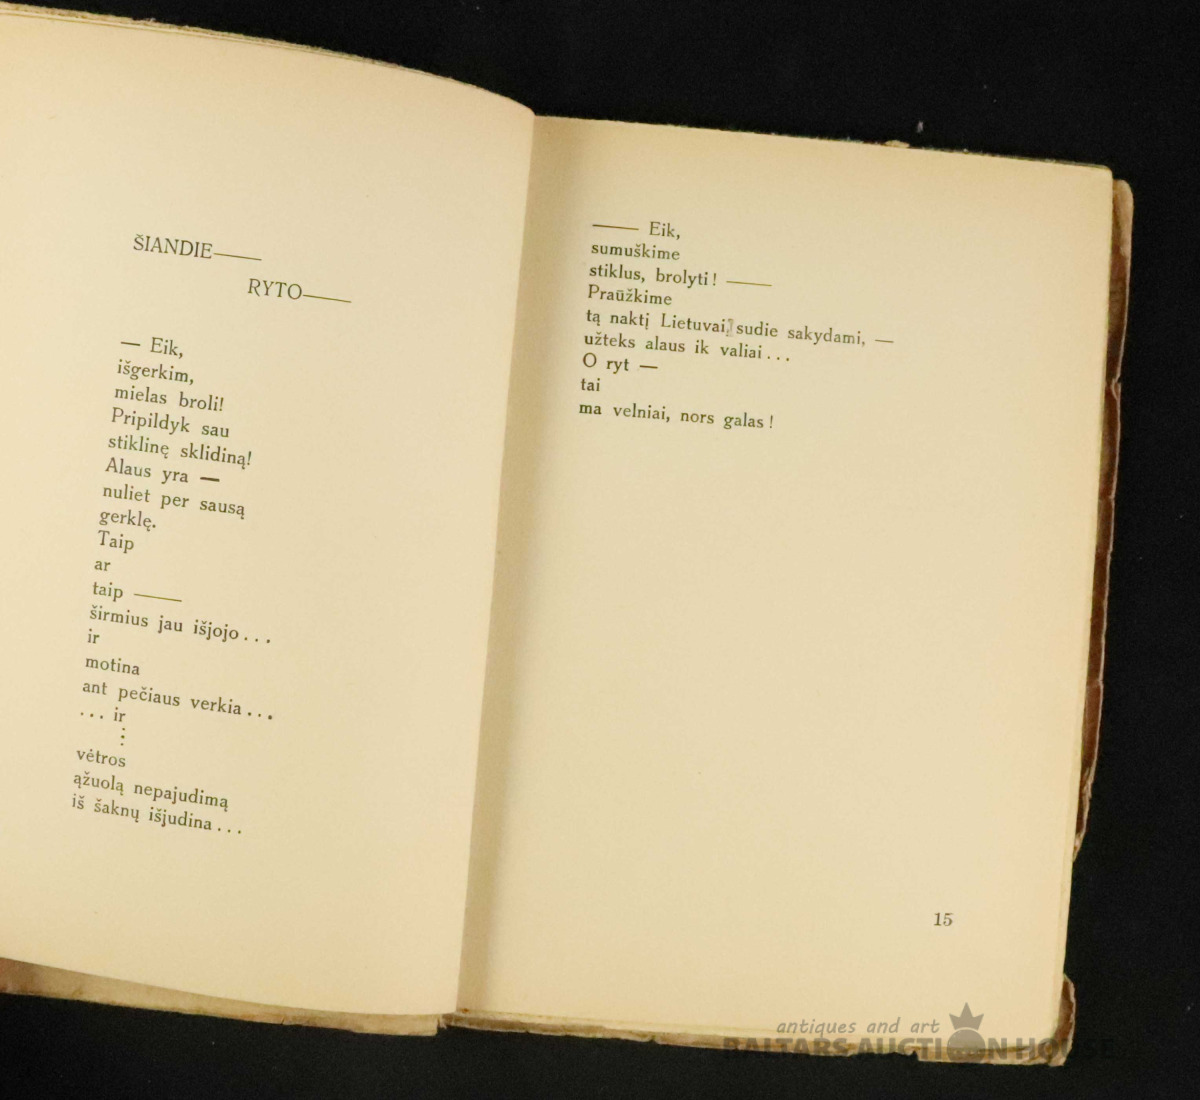 ŠIANDIE——
RYTO——
— Eik,
išgerkim,
mielas broli!
Pripildyk sau
stiklinę sklidiną!
Alaus yra —
nuliet per sausą
gerklę.
Taip
ar
taip ——
širmius jau išjojo...
ir
motina
ant pečiaus verkia...
... ir
⋮
vėtros
ąžuolą nepajudimą
iš šaknų išjudina...
—— Eik,
sumuškime
stiklus, brolyti! ——
Praūžkime
tą naktį Lietuvai, sudie sakydami, —
užteks alaus ik valiai...
O ryt —
tai
ma velniai, nors galas!
15
antiques and art
BALTARS AUCTION HOUSE